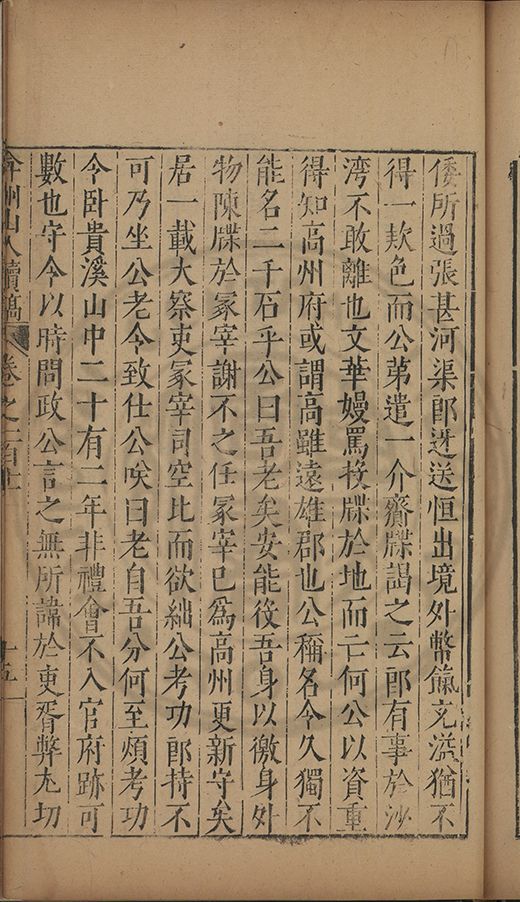 倭所過張甚河渠郎迓送恒出境外幣餼充溢猶不
得一欵色而公第遣一介齎牒謁之云郎有事於沙
湾不敢離也文華嫚罵投牒於地而亡何公以資重
得知高州府或謂高雖遠雄郡也公稱名令久獨不
能名二千石乎公曰吾老矣安能役吾身以徼身外
物陳牒於冢宰謝不之任冢宰已爲高州更新守矣
居一載大察吏冢宰司空比而欲絀公考功郎持不
可乃坐公老令致仕公咲曰老自吾分何至煩考功
令卧貴溪山中二十有二年非禮會不入官府跡可
數也守令以時問政公言之無所諱於吏胥弊尤切
弇州山人續稿 卷之一百十 十五